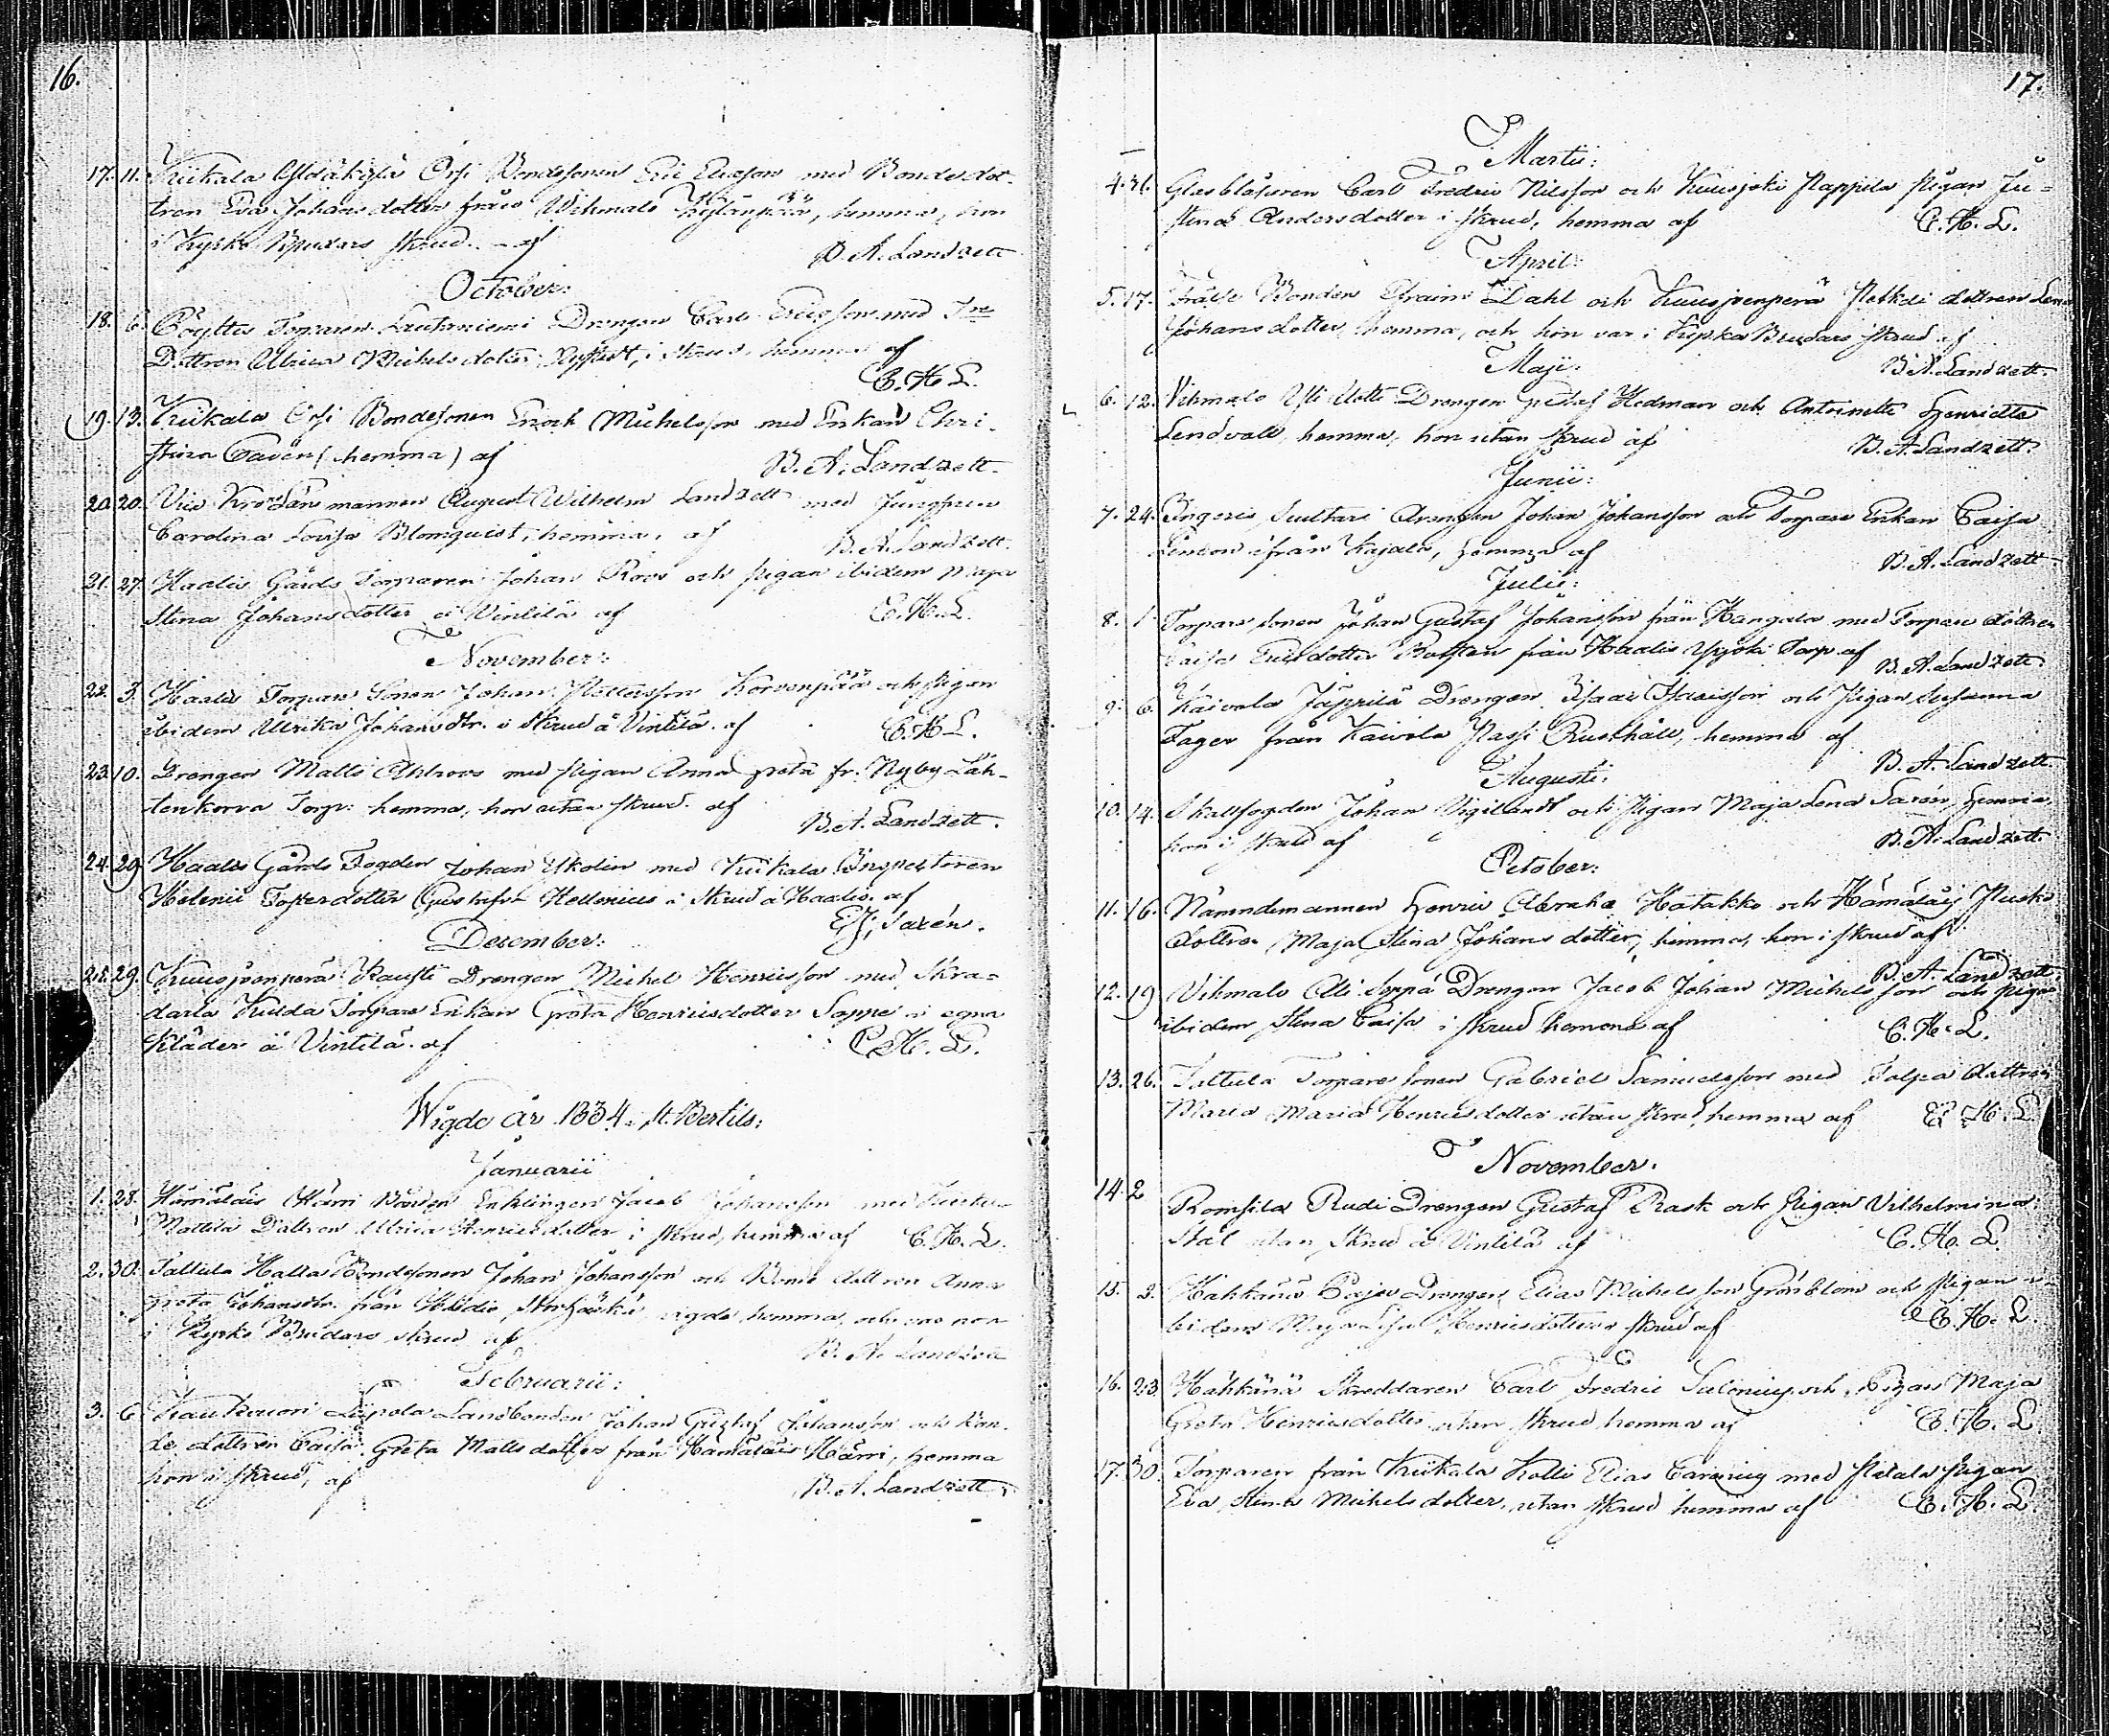 16.
17. 11. Kiikala Yldäkylä Orsi Bondesonen Eric Ericsson med Bondedot-
tren Eva Johansdotter från Wihmalo Kylänpää, hemma, hon
i Kyrko Brudars skrud. af B. A. Landzett
October:
18. 6. Pöyltes Torparen Drengen Carl Ericsson med
Dottren Ulrica Michelsdotter i skrud, hemma af
C. H. L.
19. 13. Kiikala Orsi Bondesonen Enoch Michelsson med Enkan Chri-
stina Cavén (hemma) af B. A. Landzett.
20. 20. Vice Kro Länsmannen August Wilhelm Landzett med Jungfrun
Carolina Lovisa Blomquist, hemma, af B. A. Landzett.
21. 27. Haalis Gårds Torparen Johan Roos och pigan ibidem Maja
Stina Johansdotter å Vintilä af C. H. L.
November:
22. 3. Haalis Torpare Sonen Johan Korvenpää och pigan
ibidem Ulrika Johansdtr. i skrud å Vintilä. af C. H. L.
23. 10. Drengen Matts Ahlroos med pigan Anna Greta fr. Nyby Läh-
tenkorva Torp: hemma, hon utan skrud. af B. A. Landzett.
24. 29. Haalis Gårds Fogden Johan Ekolin med Kiikala Inspectoren
Helenii Fosterdotter Gustafva Hellenius i skrud å Haalis. af
Sarén.
December:
25. 29. Kuusjoenperä Knuuti Drengen Michel Henricsson med Skra-
darla Kulda Torpare Enkan Greta Henricsdotter Soppe i egna
kläder å Vintilä. af C. H. L.
Wigde år 1834. St. Bertils:
Januarii
1. 28. Hämäläis Härri Bonden Enklingen Jacob Johansson med
Mattila Dottren Ulrica Henricsdotter i skrud, hemma af C. H. L.
2. 30. Tattula Halla Bondesonen Johan Johansson och Bonde dottren Anna
Greta Johansdtr. från vigde hemma, och var hon
i Kyrko Brudars skrud af B. A. Landzett
Februarii:
3. 6. Liipola Landbonden Johan Gustaf Johansson och Bon-
de dottren Caisa Greta Mattsdotter från Hämäläis Härri, hemma
hon i skrud, af B. A. Landzett
17.
Martii:
4. 31. Glasblåsaren Carl Fredric Nilsson och Kuusjoki Pappila pigan Ju-
stina Andersdotter i skrud, hemma af C. H. L.
April:
5. 17. Frälse Bonden Efraim Dahl och Kuusjoenperä dottren Lena
Johansdotter, hemma, och hon var i Kyrko Brudars skrud af
B. A. Landzett.
Maji:
6. 12. Vihmalo Yli Uotti Drengen Gustaf Hedman och Antoinette Henrietta
Lendvall, hemma, hon utan skrud af B. A. Landzett.
Junii:
7. 24. Ingeris Suutari Drengen Johan Johansson och Torpare Enkan Caisa
ifrån Kajala, hemma af B. A. Landzett.
Julii:
8. 1. Torpare sonen Johan Gustaf Johansson från Hangala med Torpare dottren
Caisa från Haalis Torp. af B. A. Landzett.
9. 6. Kaivola Jäprilä Drengen Isaac Isacsson och Pigan Susanna
Fager från Kaivola Passi Rusthåll, hemma af
B. A. Landzett.
Augusti:
10. 14. Skallfogden Johan Vigilandt och Pigan Maja Lena Sarén, hemma,
hon i skrud af B. A. Landzett.
October:
11. 16. Nämndemannen Henric Abraha Hatakko och Hämäläis
dottren Maja Stina Johansdotter, hemma, hon i skrud af
B. A. Landzett
12. 19 Vihmalo Alli Seppä Drengen Jacob Johan Michelsson och pigan
ibidem Stina Caisa i skrud hemma af C. H. L.
13. 26. Tattula Torpare sonen Gabriel Samuelsson med Talpa dottren
Maria Maria Henricsdotter utan skrud, hemma af C. H. L.
November.
14. 2 Romsila Rudi Drengen Gustaf Rask och Pigan Vilhelmina
Stål utan skrud å Vintilä af C. H. L.
15. 3. Hähkänä Drengen Elias Michelsson Grönblom och Pigan i-
bidem Maja Lisa Henricsdotter i skrud af C. H. L.
16. 23. Hähkänä Skreddaren Carl Fredric Salenius och Pigan Maja
Greta Henricsdotter utan skrud hemma af C. H. L.
17. 30. Torparen från Kiikala Kolli Elias med pigan
Eva Stina Michelsdotter, utan skrud hemma af C. H. L.